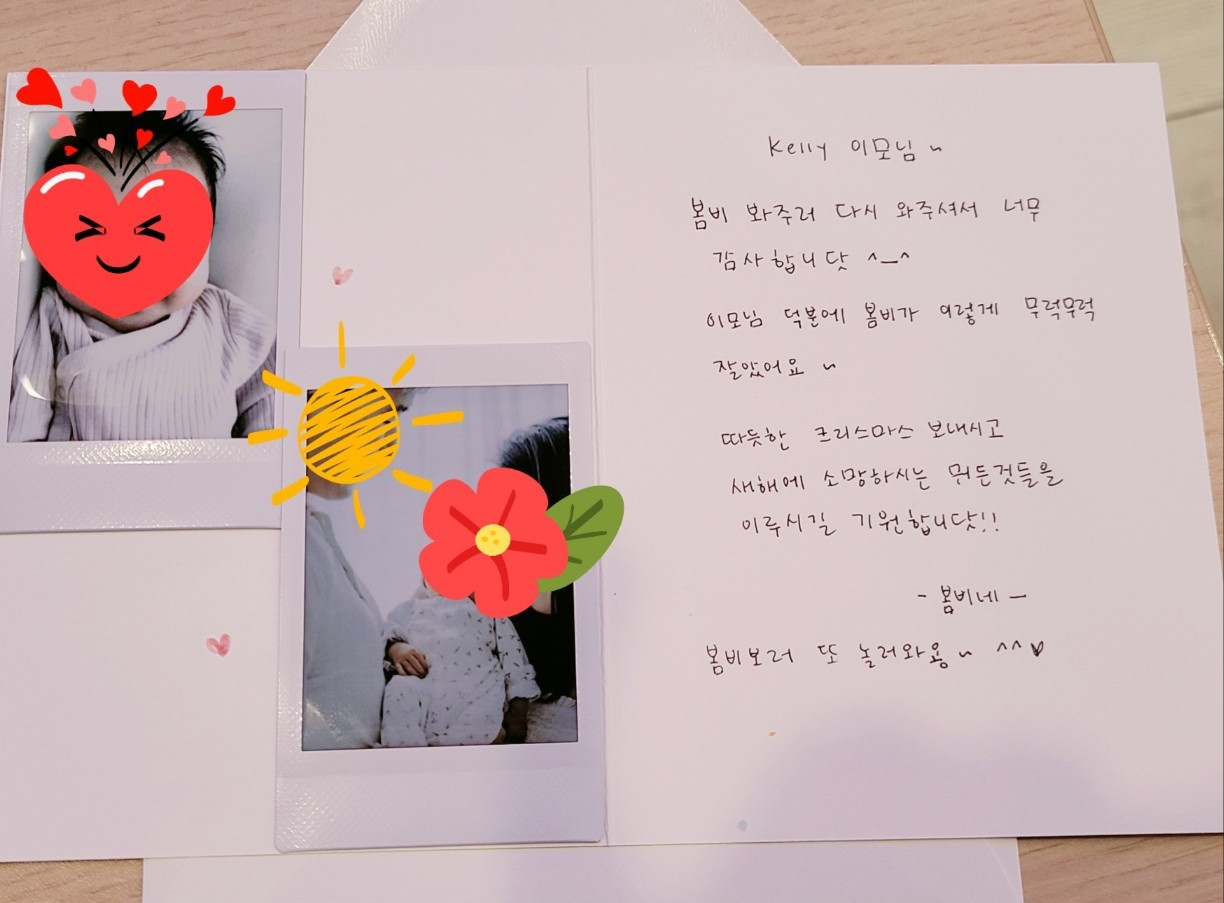 Kelly 이모님~
봄비 봐주러 다시 와주셔서 너무
감사합니닷 ^_^
이모님 덕분에 봄비가 이렇게 무럭무럭
잘았어요~
따듯한 크리스마스 보내시고
새해에 소망하시는 뭐든것들을
이루시길 기원합니닷!!
- 봄비네 -
봄비보러 또 놀러와용~ ^^♥